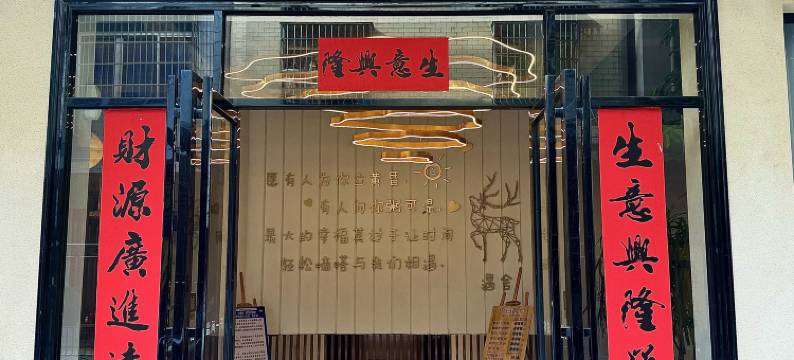 生意興隆
生意興隆
財源廣進
愿有人为你立黄昏
有人问你粥可温.
最大的幸福莫过于让时间
轻松嘀嗒与我们相遇.
遇舍